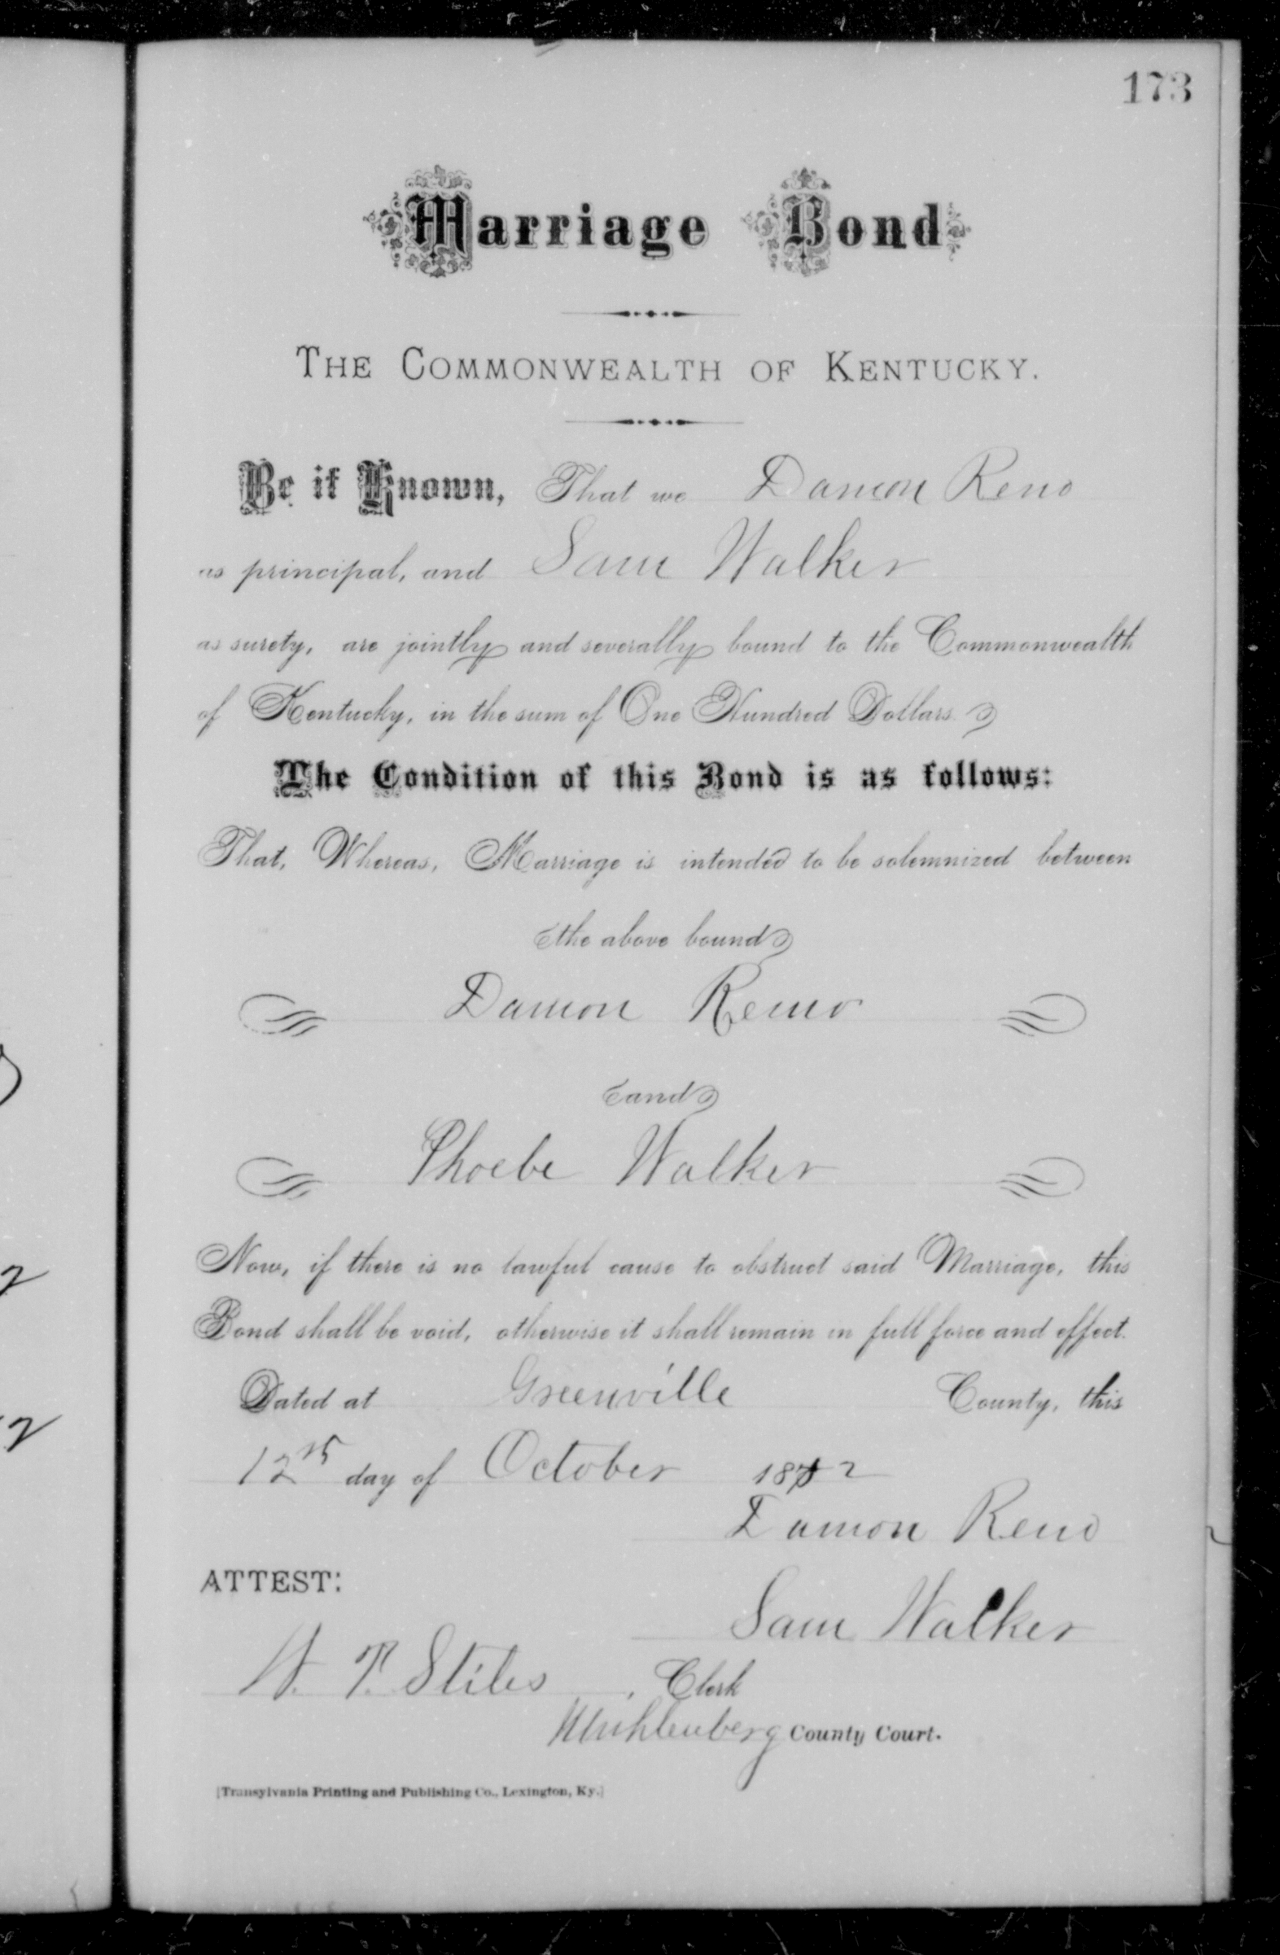 173
Marriage Bond
THE COMMONWEALTH OF KENTUCKY.
Be it Known, That we Damon Reno
as principal, and Sam Walker
as surety, are jointly and severally bound to the Commonwealth
of Kentucky, in the sum of One Hundred Dollars.
The Condition of this Bond is as follows:
That, Whereas, Marriage is intended to be solemnized between
the above bound
Damon Reno
and
Phoebe Walker
Now, if there is no lawful cause to obstruct said Marriage, this
Bond shall be void, otherwise it shall remain in full force and effect.
Dated at Greenville County, this
12th day of October 1872
Damon Reno
ATTEST:
Sam Walker
W. T. Stiles, Clerk
Muhlenberg County Court.
[Transylvania Printing and Publishing Co., Lexington, Ky.]